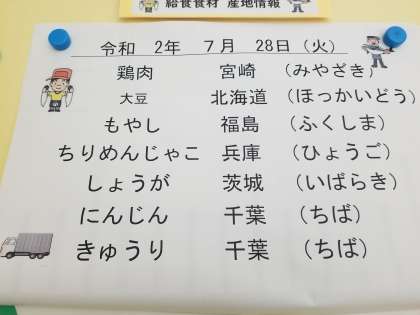 給食食材 産地情報
令和 2年 7月 28日（火）
鶏肉 宮崎（みやざき）
大豆 北海道（ほっかいどう）
もやし 福島（ふくしま）
ちりめんじゃこ 兵庫（ひょうご）
しょうが 茨城（いばらき）
にんじん 千葉（ちば）
きゅうり 千葉（ちば）